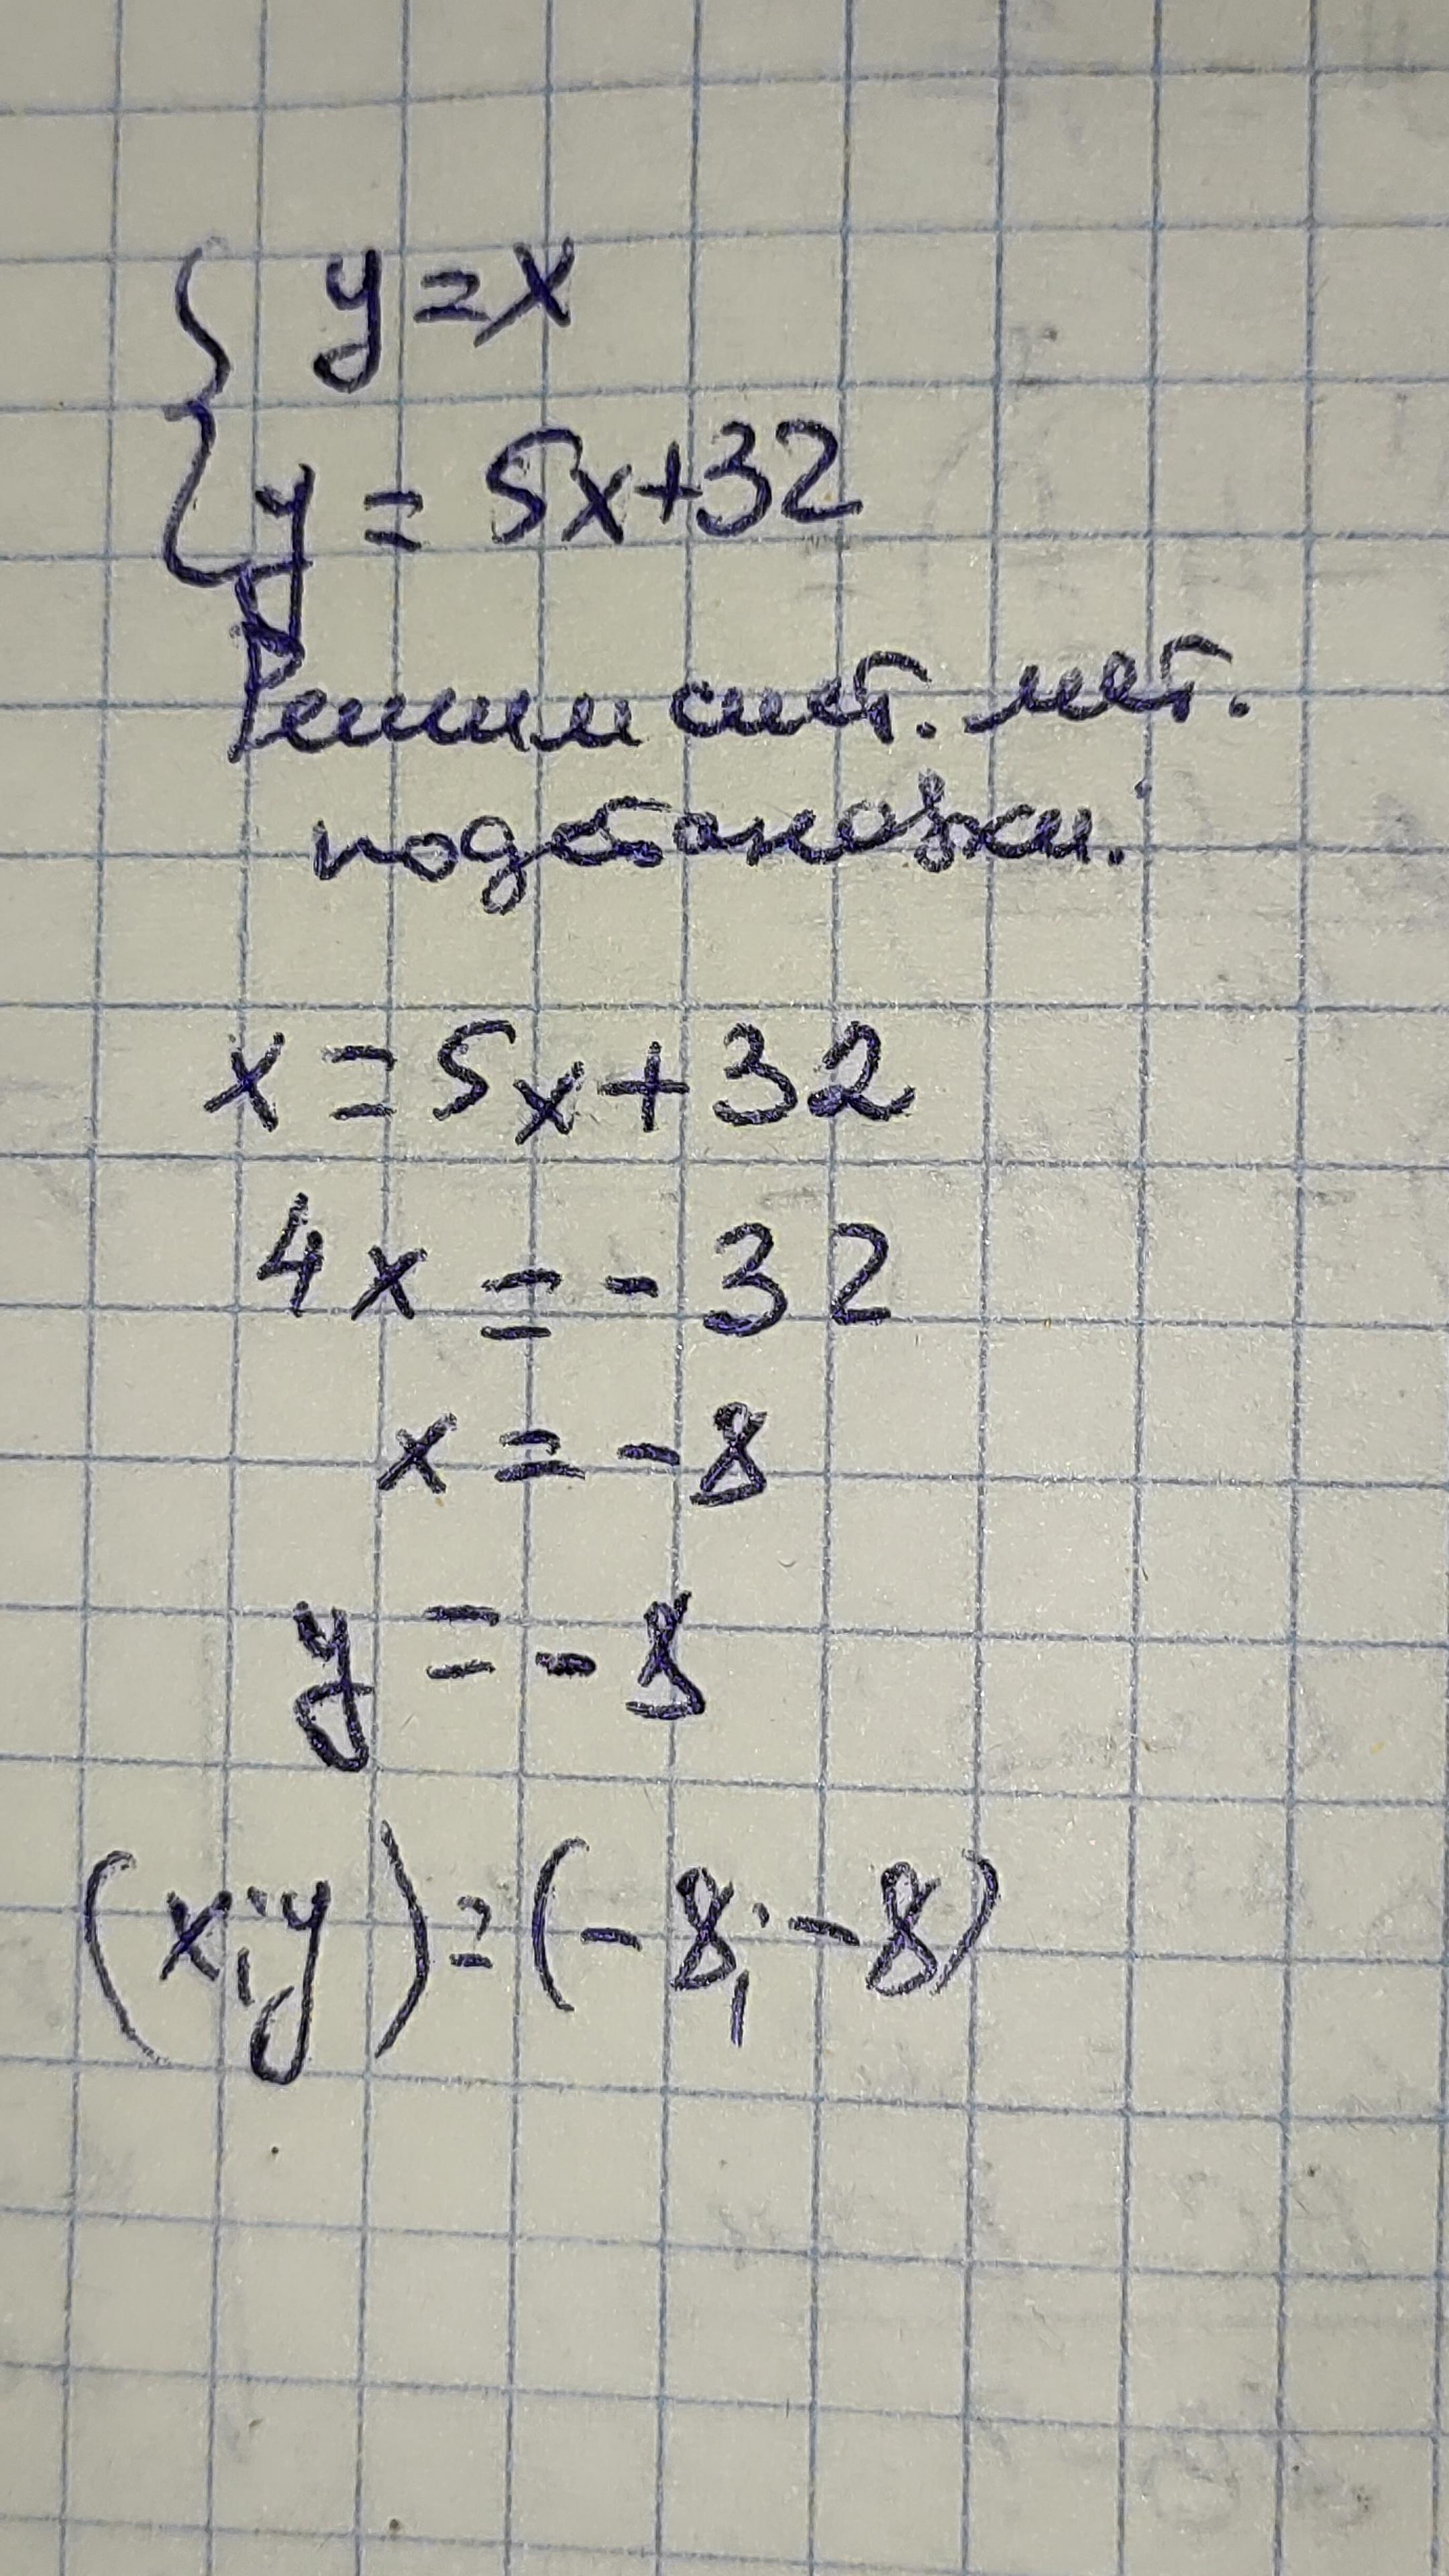 { y = x
y = 5x+32
Решим сист. мет.
подстановки.
x = 5x + 32
4x = - 32
x = - 8
y = - 8
(x; y) = (- 8; - 8)